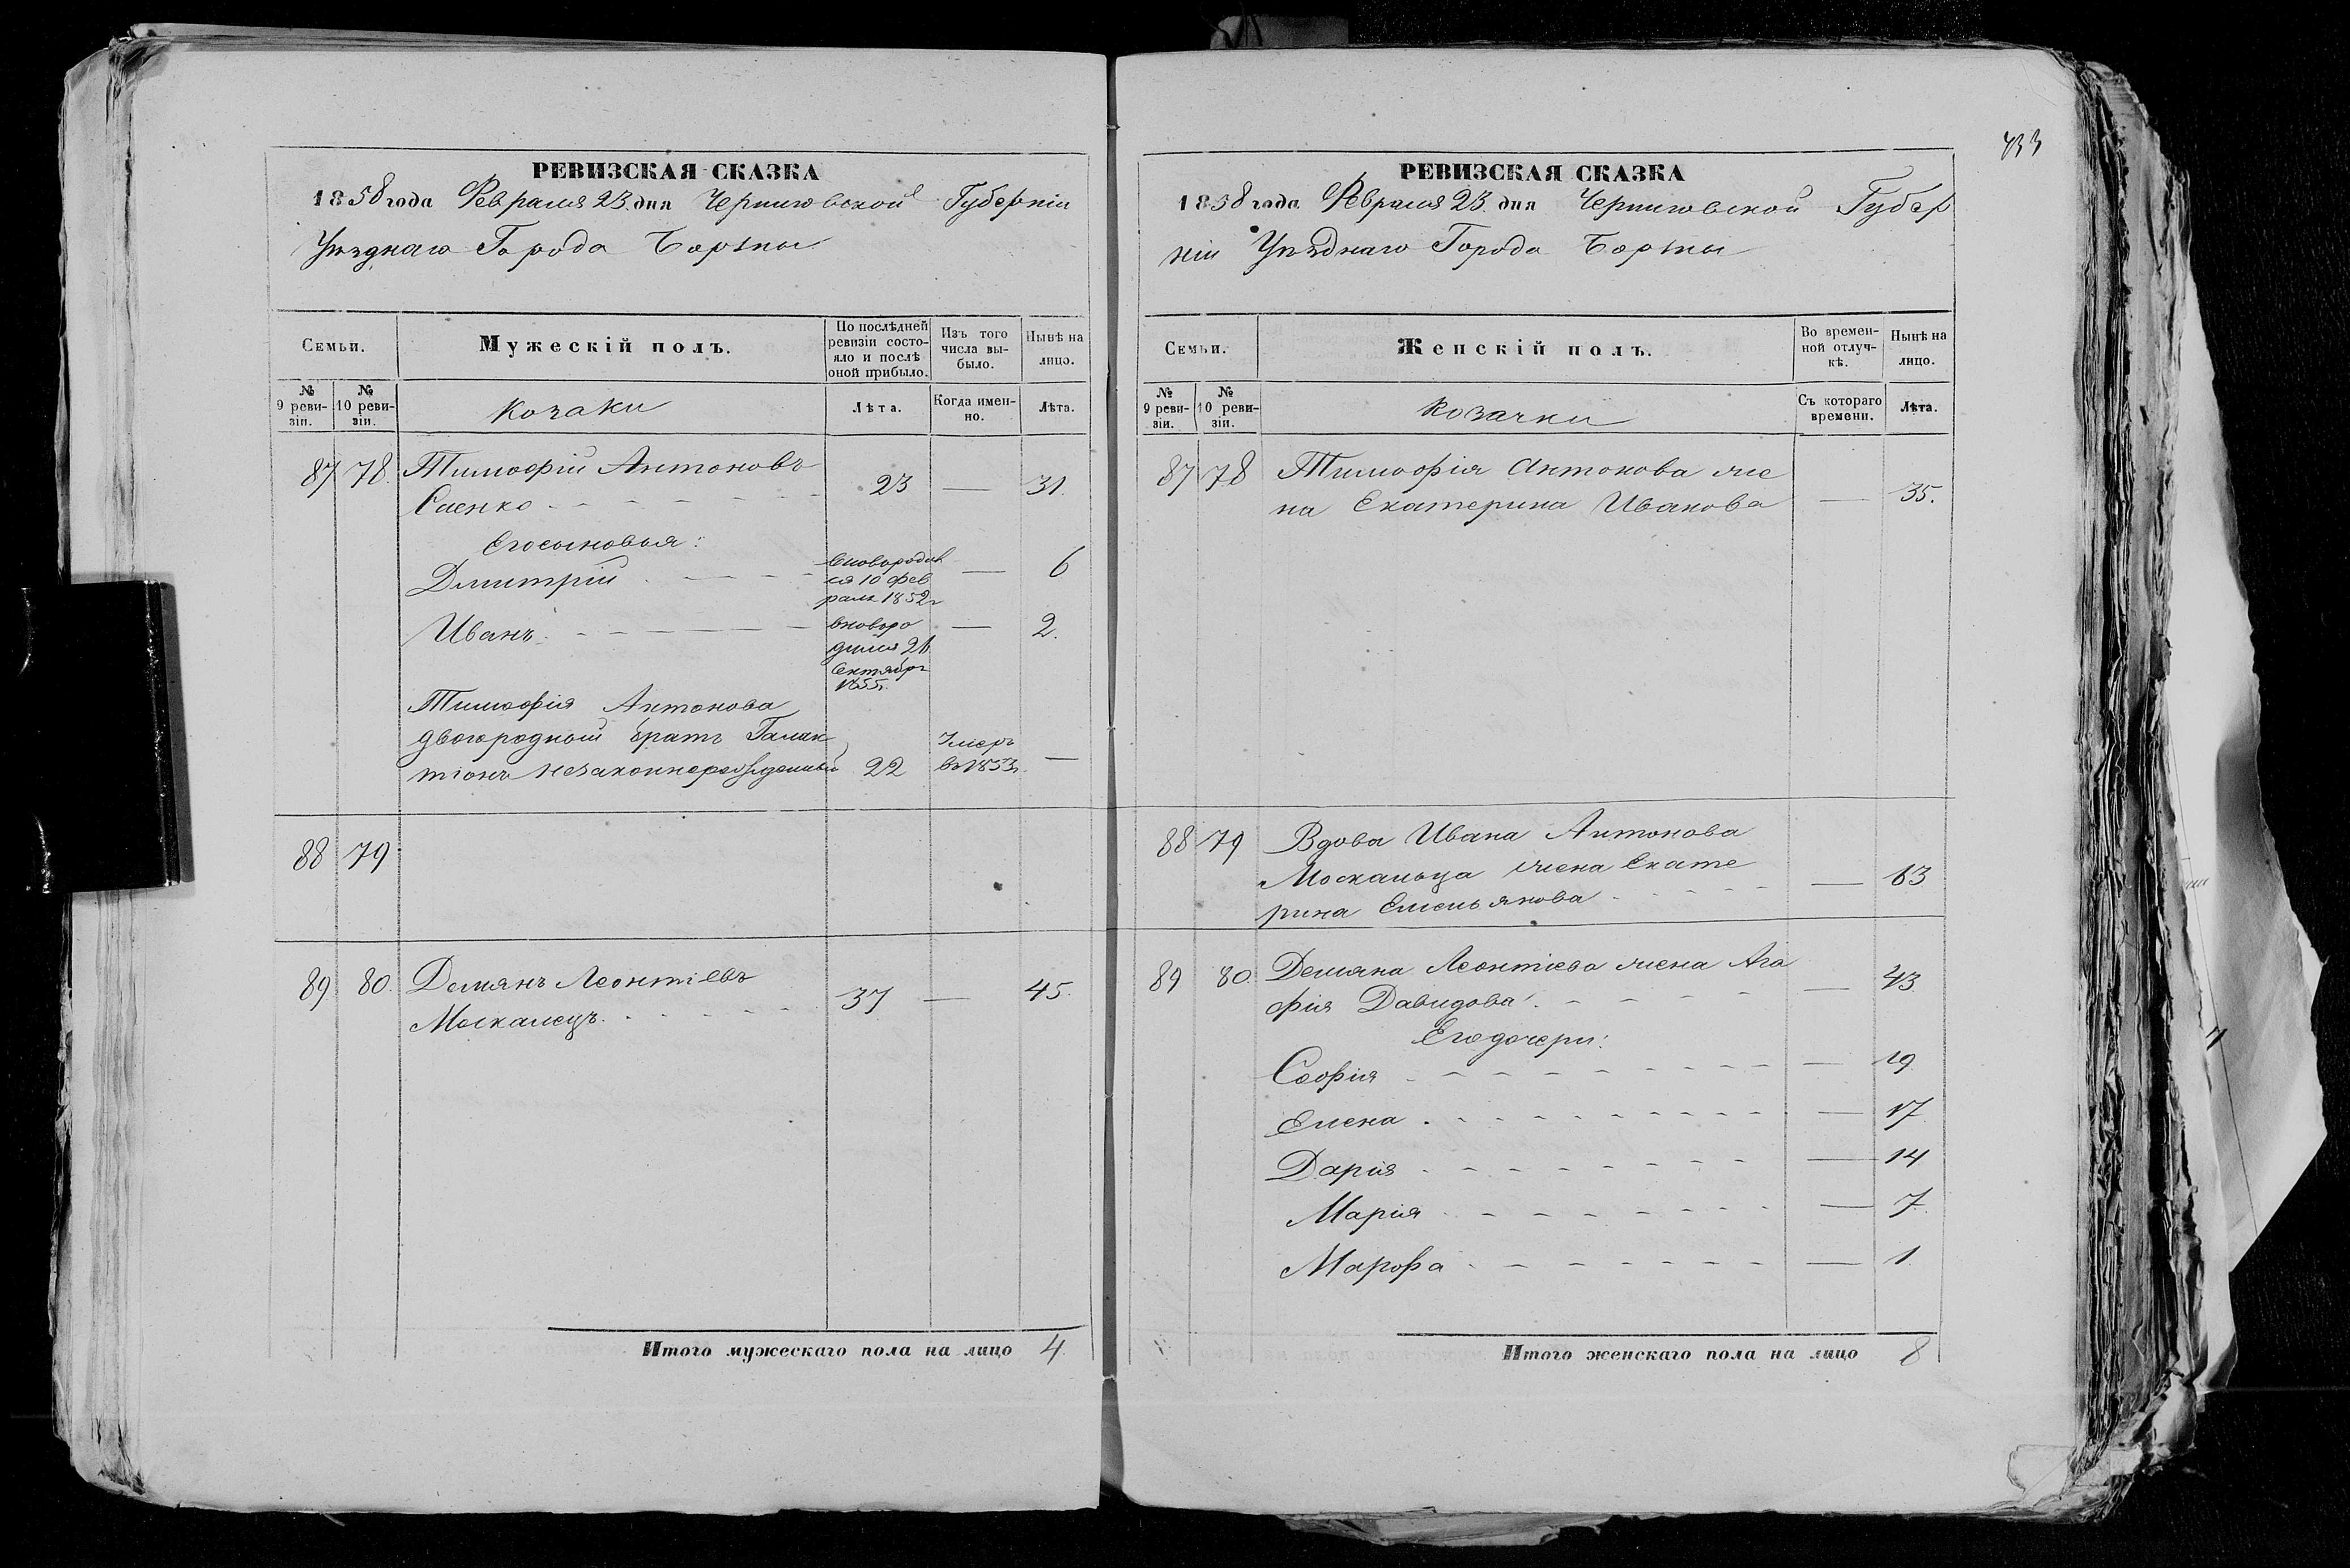 РЕВИЗСКАЯ СКАЗКА
1858 года Февраля 23 дня Черниговской Губерніи
Уѣзднаго Города Борзны
Семьи.
Мужескій полъ.
По послѣдней ревизіи состояло и послѣ оной прибыло.
Изъ того числа выбыло.
Нынѣ на лицо.
№ 9 ревизіи.
№ 10 ревизіи.
Козаки
Лѣта.
Когда именно.
Лѣта.
87 78. Тимофій Антоновъ
Саенко 23 — 31.
Его сыновья:
Дмитрій вновородив
ся 10 фев
раля 1852г — 6
Иванъ вноворо
дился 26
Сентября
1855г. — 2.
Тимофія Антонова
двоюродный братъ Галак
тіонъ незаконнорожденный 22 Умеръ
въ 1853г. —
88 79
89 80. Демянъ Леонтіевъ
Москалецъ 37 — 45.
Итого мужескаго пола на лицо 4
433
РЕВИЗСКАЯ СКАЗКА
1858 года Февраля 23 дня Черниговской Губер
ніи Уѣзднаго Города Борзны
Семьи.
Женскій полъ.
Во временной отлучкѣ.
Нынѣ на лицо.
№ 9 ревизіи.
№ 10 ревизіи.
Козачки
Съ котораго времени.
Лѣта.
87 78 Тимофія Антонова же
на Екатерина Иванова — 35.
88 79 Вдова Ивана Антонова
Москальца жена Екате
рина Емельянова — 63
89 80. Демяна Леонтіева жена Ага
фія Давидова — 43
Его дочери:
Софія — 19
Елена — 17
Дарія — 14
Марія — 7
Марфа — 1
Итого женскаго пола на лицо 8